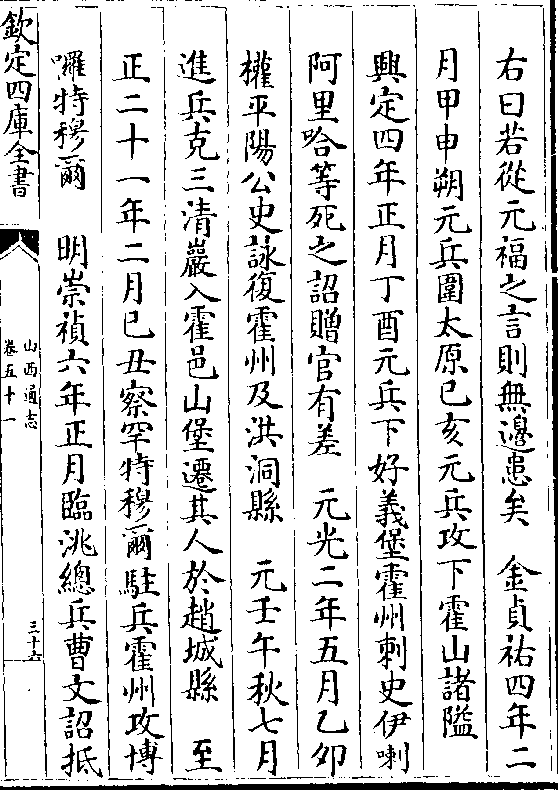 右曰若從元福之言則無邊患矣　金貞祐四年二
月甲申朔元兵圍太原己亥元兵攻下霍山諸隘
興定四年正月丁酉元兵下好義堡霍州刺史伊喇
阿里哈等死之詔贈官有差　元光二年五月乙卯
權平陽公史詠復霍州及洪洞縣　元壬午秋七月
進兵克三清巖入霍邑山堡遷其人於趙城縣　至
正二十一年二月己丑察罕特穆爾駐兵霍州攻博
囉特穆爾　明崇禎六年正月臨洮總兵曹文詔抵
欽定四庫全書
山西通志
卷五十一
三十六